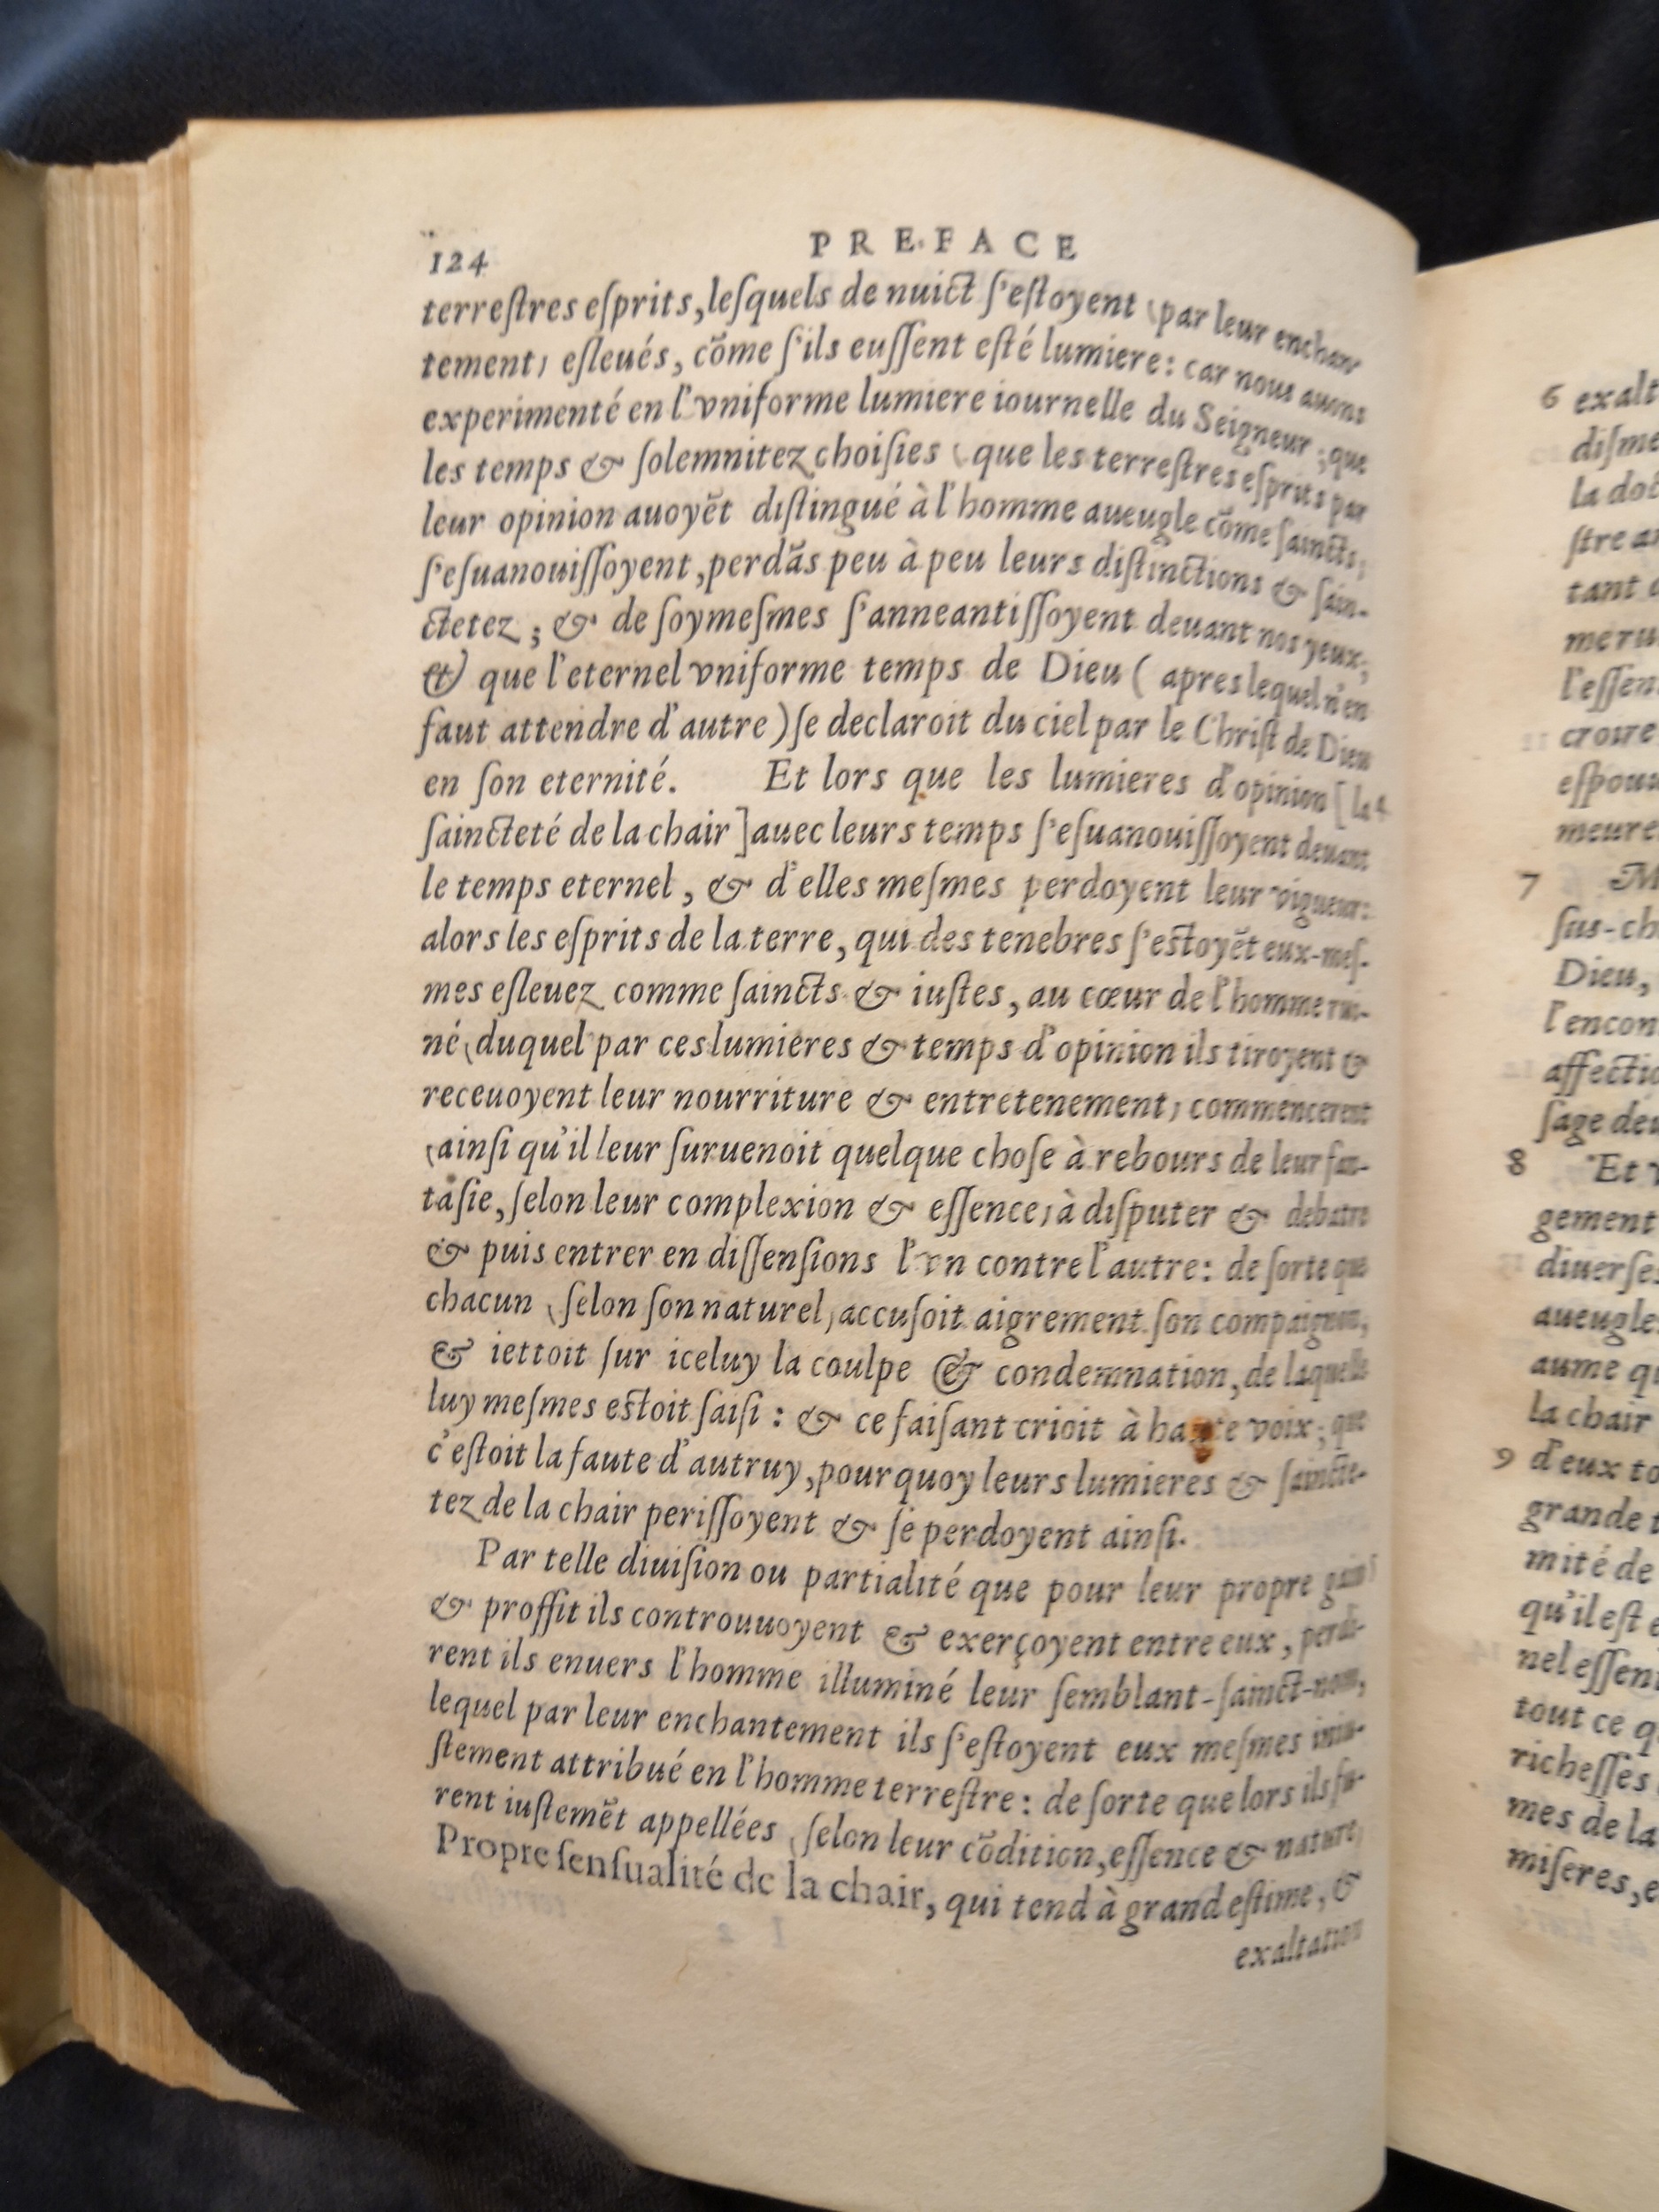 124
PREFACE
terreſtres eſprits, leſquels de nuict ſ'eſtoyent (par leur enchan-
tement) eſleués, cõme ſ'ils euſſent eſté lumiere: car nous auons
experimenté en l'vniforme lumiere iournelle du Seigneur; que
les temps & ſolemnitez choiſies (que les terreſtres eſprits par
leur opinion auoyẽt diſtingué à l'homme aueugle cõme ſaincts)
ſ'eſuanouiſſoyent, perdãs peu à peu leurs diſtinctions & ſain-
ctetez; & de ſoymeſmes ſ'anneantiſſoyent deuant nos yeux;
& que l'eternel vniforme temps de Dieu (apres lequel n'en
faut attendre d'autre) ſe declaroit du ciel par le Chriſt de Dieu
en ſon eternité. Et lors que les lumieres d'opinion [la 4
ſaincteté de la chair] auec leurs temps ſ'eſuanouiſſoyent deuant
le temps eternel, & d'elles meſmes perdoyent leur vigueur:
alors les eſprits de la terre, qui des tenebres ſ'eſtoyẽt eux-meſ-
mes eſleuez comme ſaincts & iuſtes, au cœur de l'homme rui-
né (duquel par ces lumieres & temps d'opinion ils tiroyent &
receuoyent leur nourriture & entretenement) commencerent
(ainſi qu'il leur ſuruenoit quelque choſe à rebours de leur fan-
taſie, ſelon leur complexion & eſſence) à diſputer & debatre
& puis entrer en diſſenſions l'vn contre l'autre: de ſorte que
chacun (ſelon ſon naturel) accuſoit aigrement ſon compaignon,
& iettoit ſur iceluy la coulpe & condemnation, de laquelle
luy meſmes eſtoit ſaiſi: & ce faiſant crioit à haute voix; que
c'eſtoit la faute d'autruy, pourquoy leurs lumieres & ſaincte-
tez de la chair periſſoyent & ſe perdoyent ainſi.
Par telle diuiſion ou partialité que pour leur propre gain 5
& proffit ils controuuoyent & exerçoyent entre eux, perdi-
rent ils enuers l'homme illuminé leur ſemblant-ſainct-nom,
lequel par leur enchantement ils ſ'eſtoyent eux meſmes iniu-
ſtement attribué en l'homme terreſtre: de ſorte que lors ils fu-
rent iuſtemẽt appellées (ſelon leur cõdition, eſſence & nature)
Propre ſenſualité de la chair, qui tend à grand eſtime, &
exaltation
6 exalt
diſme
la doc
ſtre
tant
l'eſſen
croire
meure
7
ſus-ch
Dieu,
l'encon
affectio
ſage
8 Et
gement
diuerſes
aueugle
aume
la chair
9 d'eux
grande
mité de
qu'il eſt
nel eſſen
tout ce
richeſſes
mes de la
miſeres,